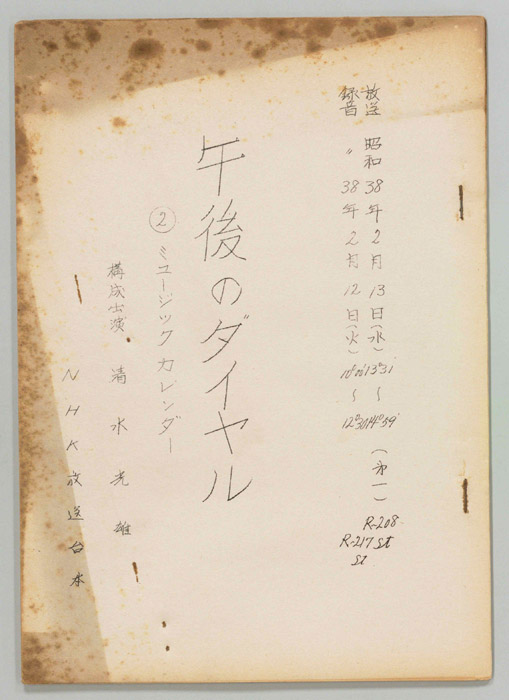 放送 昭和38年2月13日(水) 13°31'〜14°59' (第一) R-208 st
録音 〃 38年2月12日(火) 〜12°30' R-217 st
午後のダイヤル
② ミュージックカレンダー
構成出演 清水光雄
NHK放送台本